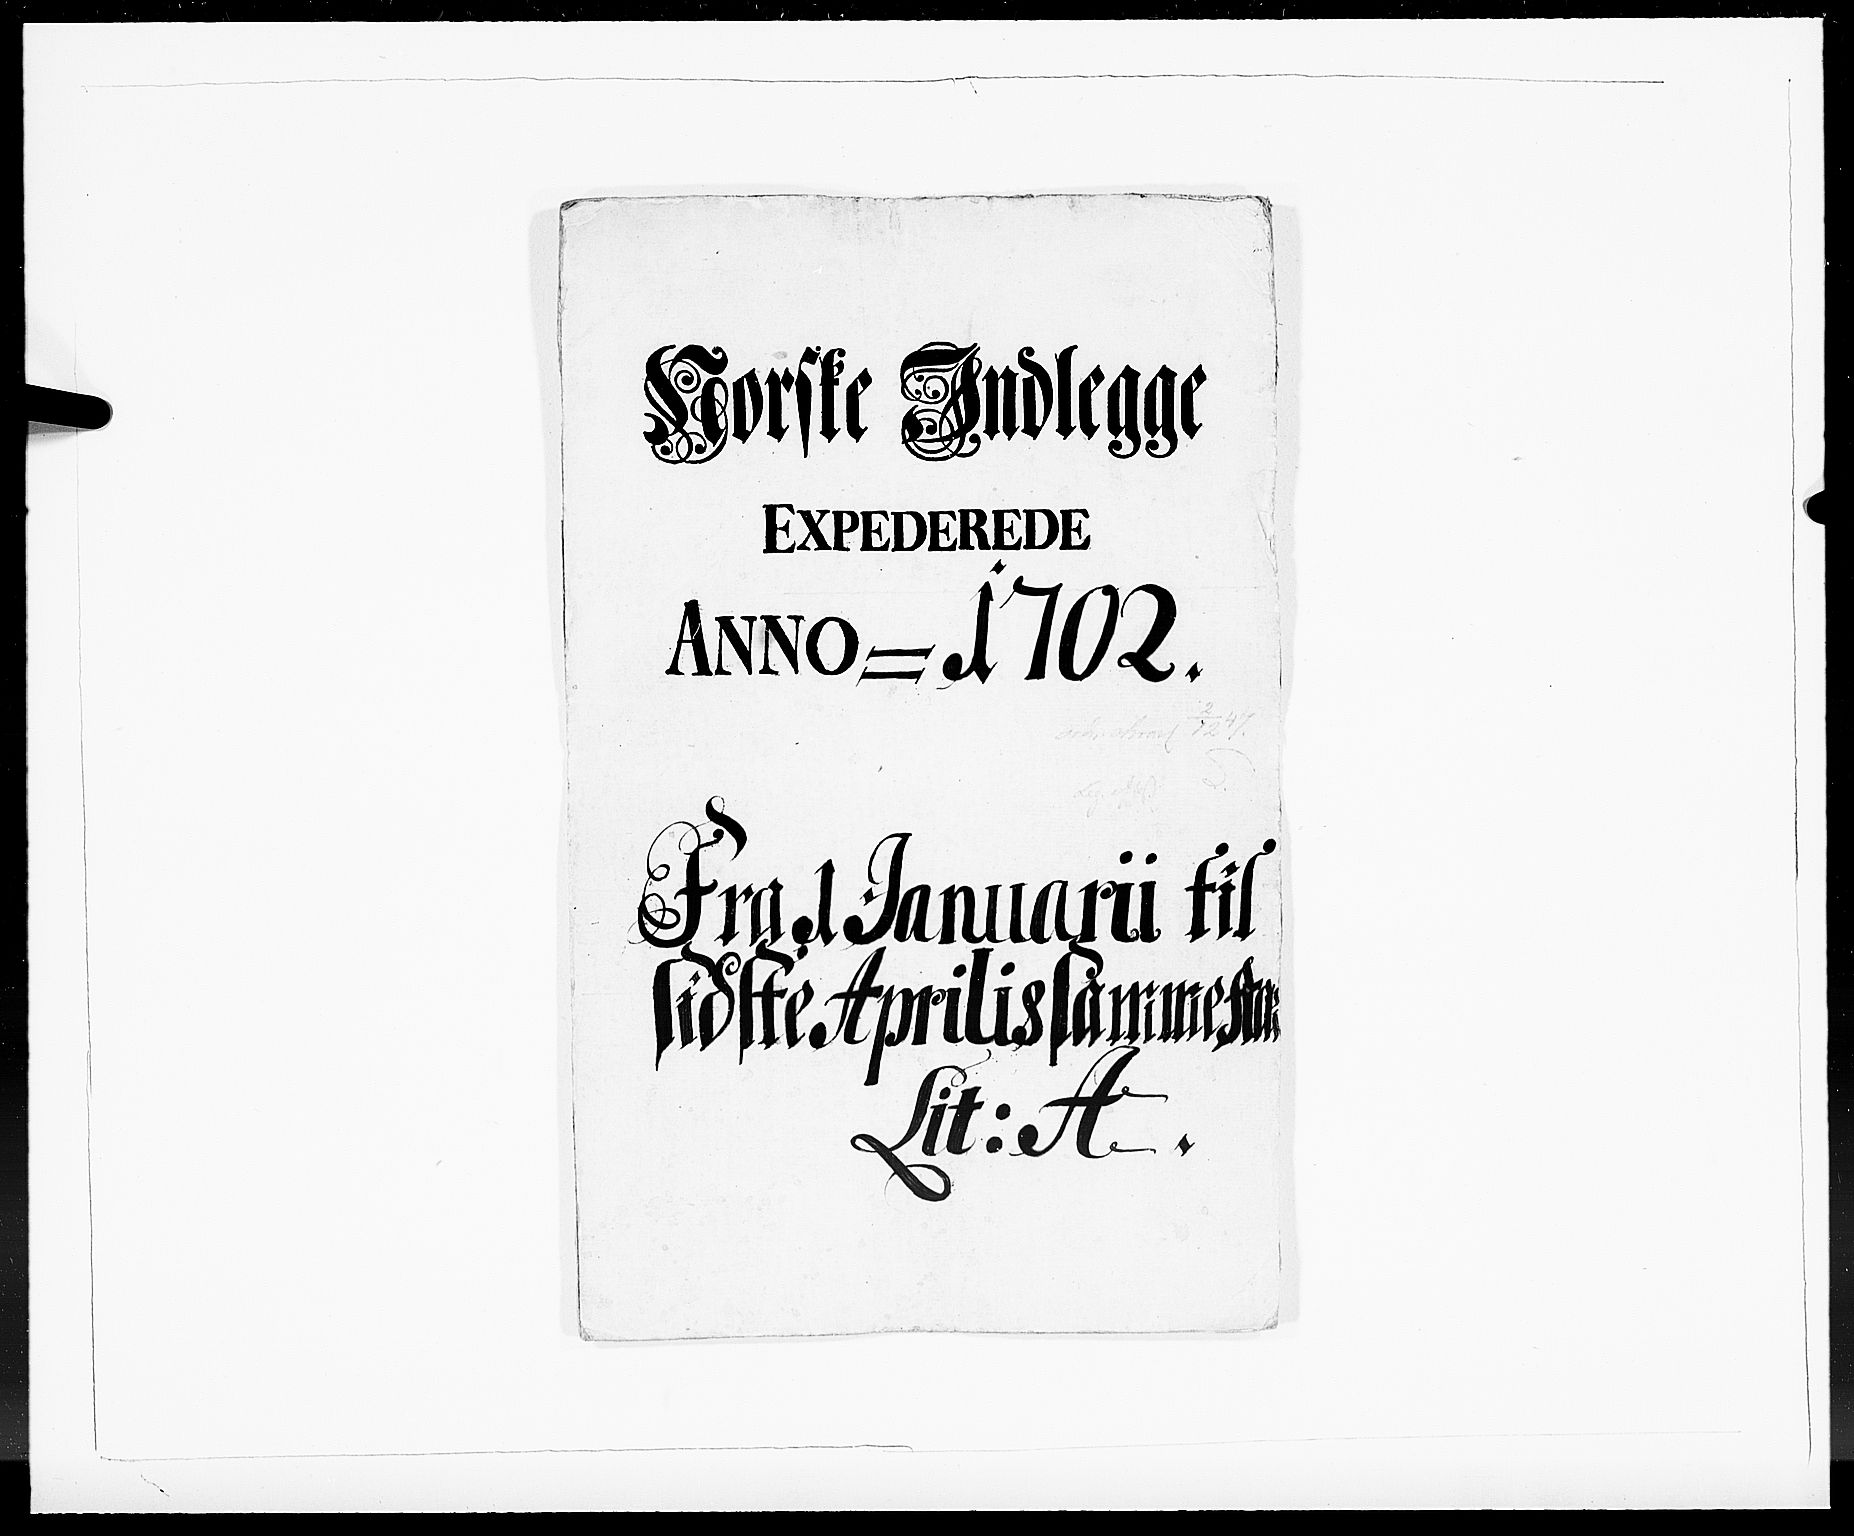 Norske Indlegge
EXPEDEREDE
ANNO = 1702.
2/12 47.
Fra 1 Januarii til
sidste Aprilis samme
Lit: A.